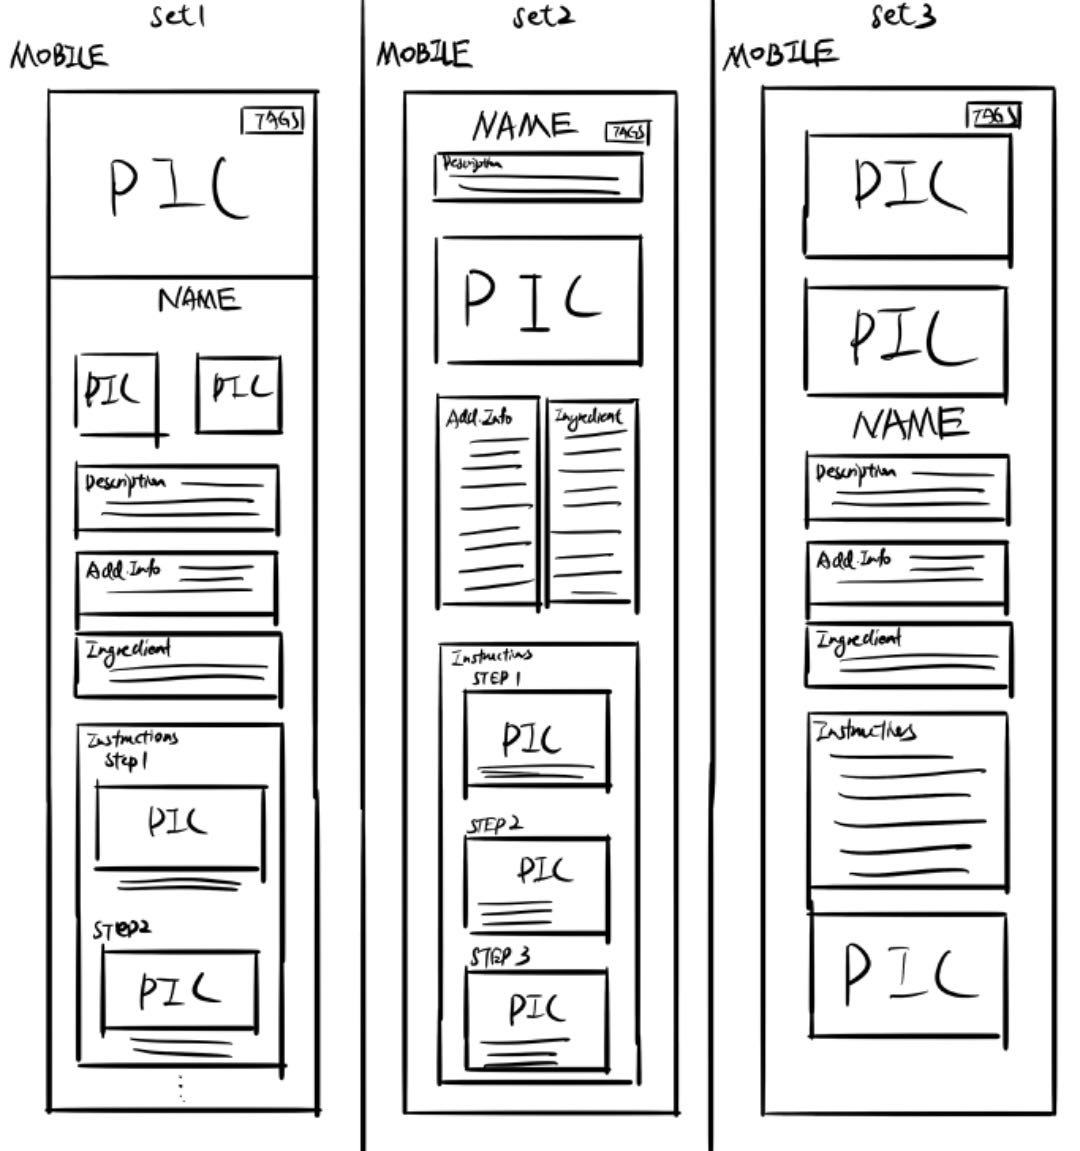 set1
MOBILE
TAGS
PIC
NAME
PIC PIC
Description
Add.Info
Ingredient
Instructions
Step1
PIC
STEP2
PIC
set2
MOBILE
NAME TAGS
Description
PIC
Add.Info Ingredient
Instructions
STEP 1
PIC
STEP2
PIC
STEP 3
PIC
set3
MOBILE
TAGS
PIC
PIC
NAME
Description
Add.Info
Ingredient
Instructions
PIC